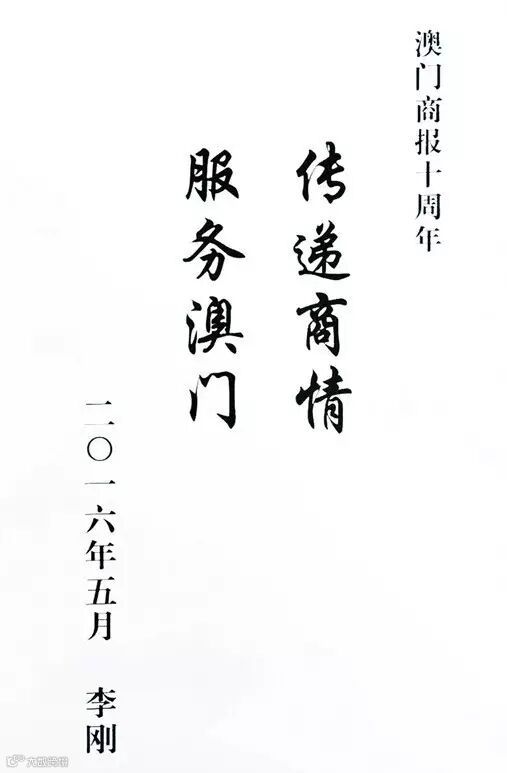 澳门商报十周年
传递商情
服务澳门
二〇一六年五月 李刚